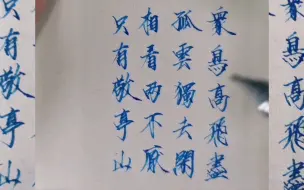 衆鳥高飛盡
孤雲獨去閑
相看两不厭
只有敬亭山